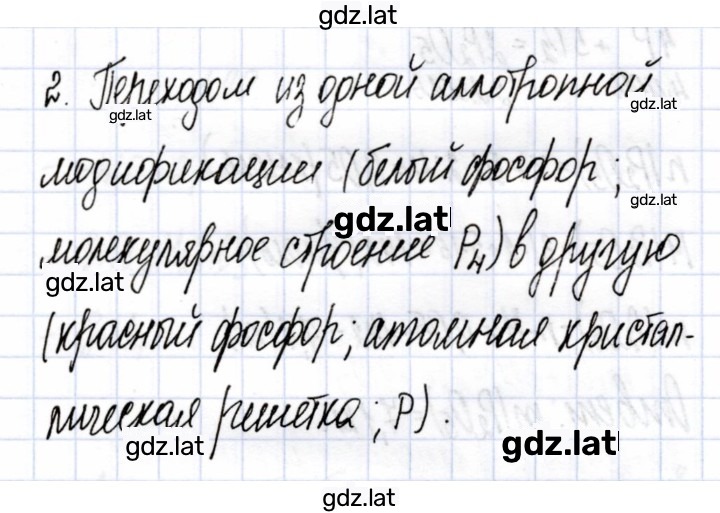 gdz.lat
2. Переходом из одной аллотропной
gdz.lat gdz.lat
модификации (белый фосфор;
gdz.lat gdz.lat
молекулярное строение P₄) в другую
gdz.lat
(красный фосфор; атомная кристал-
лическая решетка; P).
gdz.lat gdz.lat
gdz.lat